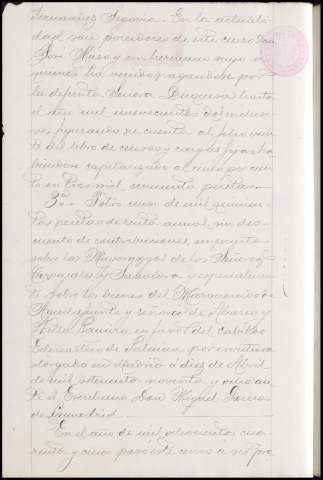 Fernandez Segovia. En la actuali-
dad son poseedores de este censo Don
José Maso y su hermano cuyo a
quienes ha venido pagandose por
la difunta Señora Duquesa hasta
el año mil novecientos dos inclusi-
ve, figurando su cuenta al folio vein-
te del libro de censos y cargas fijas ha-
biendose capitalizado al cinco por cien-
to en tres mil cincuenta pesetas.
3º. Otro censo de mil quinien-
tas pesetas de renta anual sin des-
cuento de contribuciones, impuesto
sobre los Mayorazgos de los Señores
Carvajales y Salvedra y especialmen-
te sobre los bienes del Marquesado de
Aguilafuente y señorio de Abarca y
Villa Ramiro, en favor del cabildo
Eclesiastico de Palencia, por escritura
otorgada en Madrid á diez de Abril
de mil setecientos noventa y ocho an-
te el Escribano Don Miguel Garcia
de
En el año de mil ochocientos cua-
renta y cinco pasó este censo a ser pro